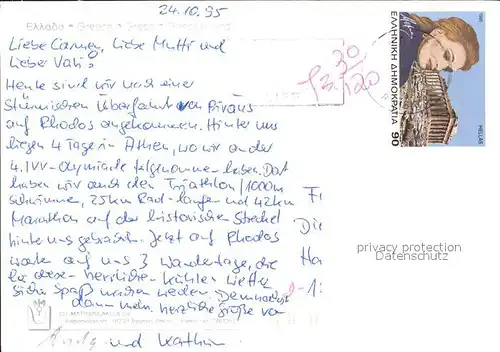 24.10.95
Ελλάδα - Greece - Grèce
Liebe Carmen, Liebe Mutti und
Lieber Vati!
Heute sind wir nach einer
Stürmischen Überfahrt von Piräus
auf Rhodos angekommen. Hinter uns
liegen 4 Tage in Athen, wo wir an der
4. IVV-Olympiade teilgenommen haben. Dort
haben wir auch den Triathlon/1000m
schwimmen, 25km Rad-fahren und 42km
Marathon auf der historischen Strecke/
hinter uns gebracht. Jetzt auf Rhodos
warten auf uns 3 Wandertage, die
bei diesem herrlichen kühlen Wetter
sicher Spaß machen werden. Demnächst
dann mehr. Herzliche Grüße von
Andy und Kathrin
30
120
ΕΛΛΗΝΙΚΗ ΔΗΜΟΚΡΑΤΙΑ 90
HELLAS
privacy protection
Datenschutz